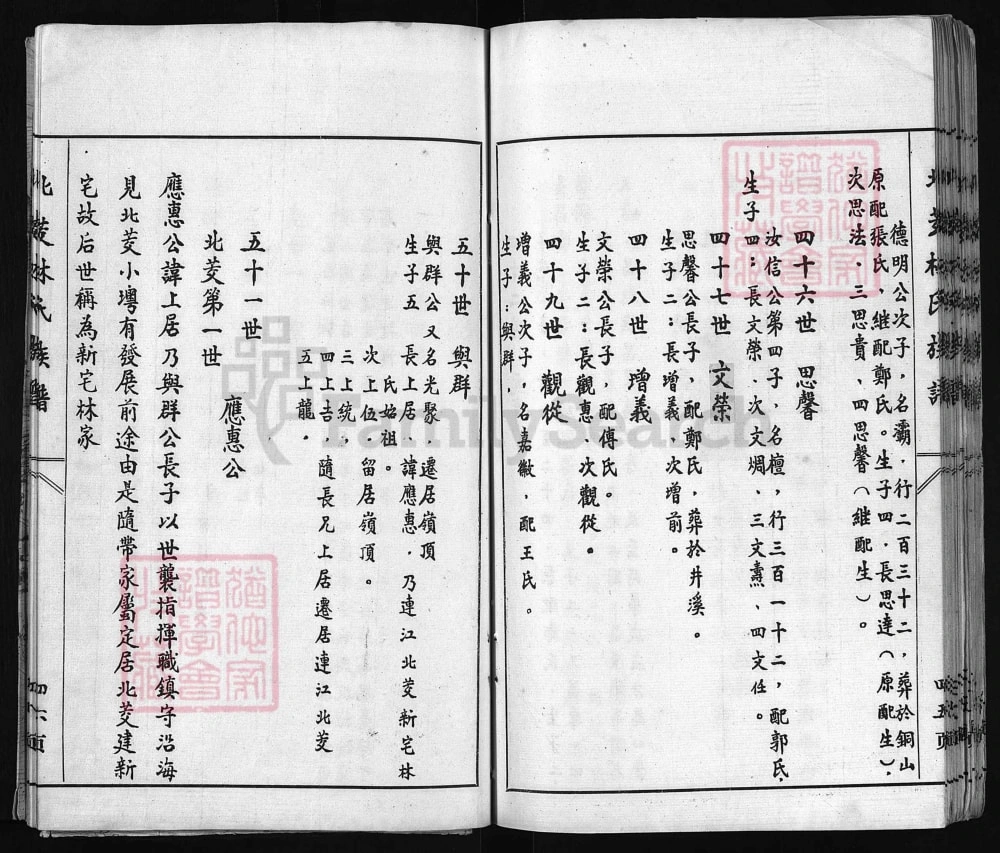 北茭林氏族譜
四五頁
德明公次子，名灞．行二百三十二，葬於銅山
原配張氏、継配鄭氏。生子四．長思達（原配生）、
次思法．三思貴、四思馨（継配生）。
四十六世　思馨
汝信公第四子．名檀，行三百一十二，配郭氏，
生子四：長文榮、次文焵、三文熹、四文任。
四十七世　文榮
思馨公長子，配鄭氏，葬於井溪。
生子二：長增義、次增前。
四十八世　增義
文榮公長子，配傅氏。
生子二：長觀惠、次觀從。
四十九世　觀從
增義公次子，名嘉徽．配王氏。
生子：與群，
五十世　與群
與群公又名光聚　遷居嶺頂
生子五　長上居．諱應惠．乃連江北茭新宅林
氏始祖。
次上伍．留居嶺頂。
三上統，
四上吉　隨長兄上居遷居連江北茭
五上龍．
五十一世
北茭第一世　應惠公
應惠公諱上居乃與群公長子以世襲指揮職鎮守沿海
見北茭小澚有發展前途由是隨帶家屬定居北茭建新
宅故后世稱為新宅林家
北茭林氏族譜
四六頁
FamilySearch